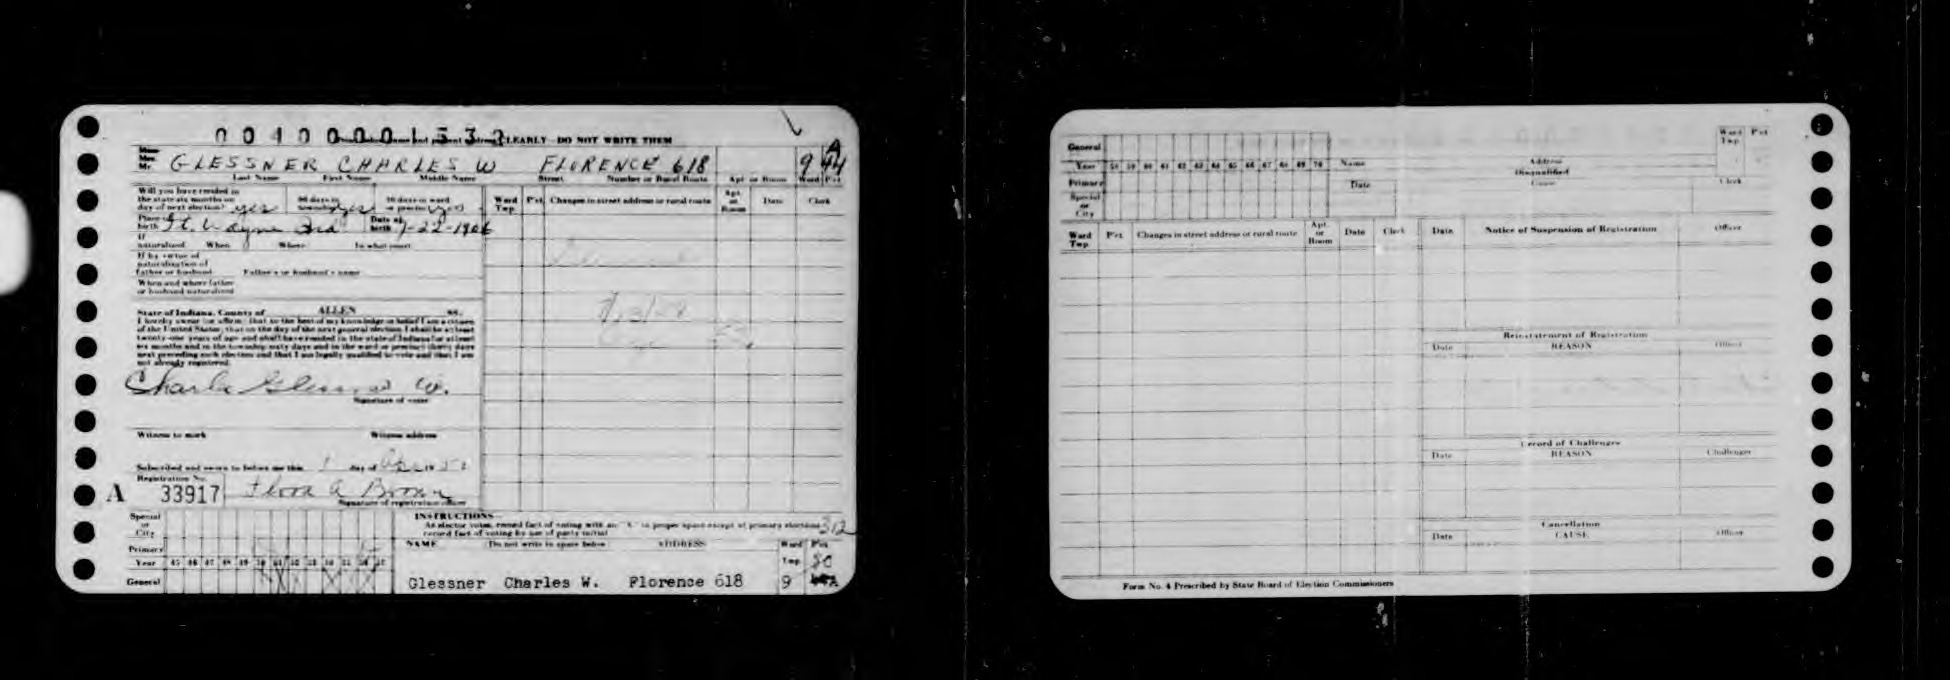 0 0 4 0 0 0 0 1 5 3 2
CLEARLY—DO NOT WRITE THEM
Miss
Mrs.
Mr. GLESSNER CHARLES W FLORENCE 618 9 A
Last Name First Name Middle Name Street Number or Rural Route Apt. or Room Ward P'ct.
Will you have resided in
the state six months on
day of next election? yes
60 days in
township yes
30 days in ward
or precinct yes
Place of
birth Ft. Wayne Ind
Date of
birth
If
naturalized When Where In what court
If by virtue of
naturalization of
father or husband Father's or husband's name
When and where father
or husband naturalized
State of Indiana, County of ALLEN ss.
I hereby swear (or affirm) that to the best of my knowledge or belief I am a citizen
of the United States; that on the day of the next general election I shall be at least
twenty-one years of age and shall have resided in the state of Indiana for at least
six months and in the township sixty days and in the ward or precinct thirty days
next preceding such election and that I am legally qualified to vote and that I am
not already registered.
Charles Glessner W.
Signature of voter
Witness to mark Witness address
Subscribed and sworn to before me this 1 day of Apr 19
Registration No.
A 33917 Flora A Brown
Signature of registration officer
Ward
Twp. P'ct. Changes in street address or rural route Apt.
or
Room Date Clerk
Special
or
City
Primary
Year 45 46 47 48 49 50 51 52 53 54 55 56 57
General
INSTRUCTIONS—
As elector votes, record fact of voting with an "X" in proper space except at primary elections
record fact of voting by use of party initial
312
NAME Do not write in space below ADDRESS Ward
Twp. P'ct.
80
Glessner Charles W. Florence 618 9 A
General
Year 58 59 60 61 62 63 64 65 66 67 68 69 70
Primary
Special
or
City
Name Address Ward
Twp. P'ct
Disqualified
Date Cause Clerk
Ward
Twp. P'ct. Changes in street address or rural route Apt.
or
Room Date Clerk
Date Notice of Suspension of Registration Officer
Reinstatement of Registration
Date REASON Officer
Record of Challenges
Date REASON Challenger
Cancellation
Date CAUSE Officer
Form No. 4 Prescribed by State Board of Election Commissioners